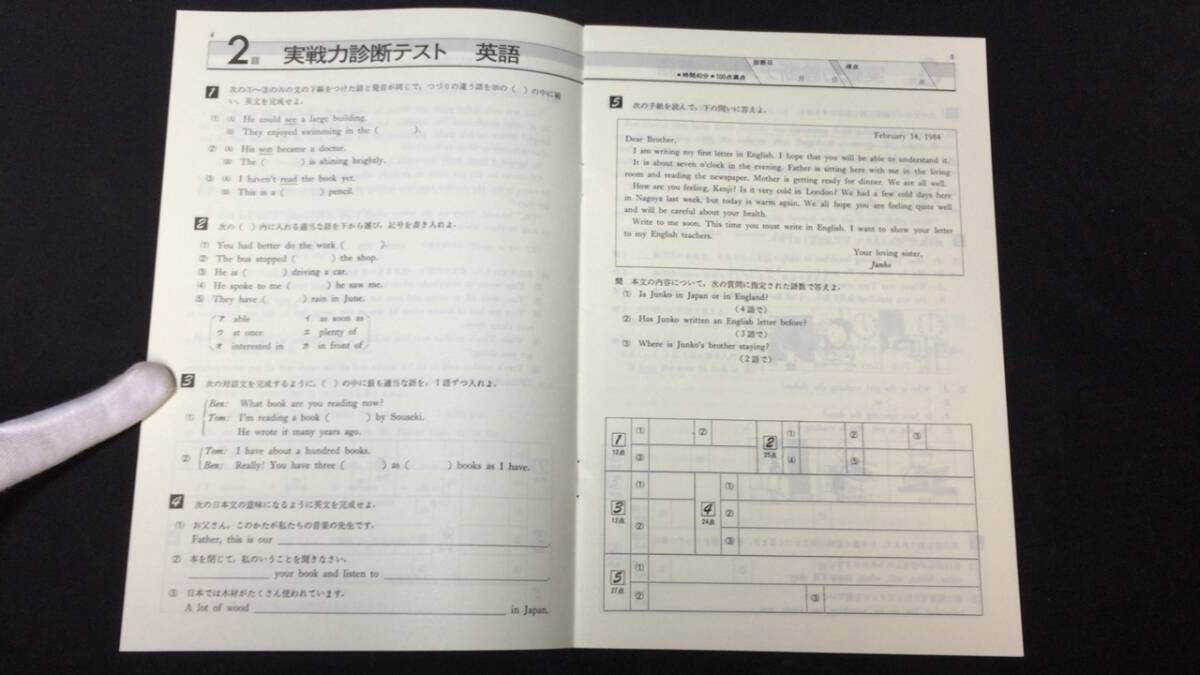 4
2回 実戦力診断テスト 英語
1 次の①〜③の(A)の文の下線をつけた語と発音が同じで,つづりの違う語を(B)の( )の中に補い,英文を完成せよ。
① (A) He could see a large building.
(B) They enjoyed swimming in the ( ).
② (A) His son became a doctor.
(B) The ( ) is shining brightly.
③ (A) I haven't read the book yet.
(B) This is a ( ) pencil.
2 次の( )内に入れる適当な語を下から選び,記号を書き入れよ。
① You had better do the work ( ).
② The bus stopped ( ) the shop.
③ He is ( ) driving a car.
④ He spoke to me ( ) he saw me.
⑤ They have ( ) rain in June.
ア able イ as soon as
ウ at once エ plenty of
オ interested in カ in front of
3 次の対話文を完成するように,( )の中に最も適当な語を,1語ずつ入れよ。
① Ben: What book are you reading now?
Tom: I'm reading a book ( ) by Souseki.
He wrote it many years ago.
② Tom: I have about a hundred books.
Ben: Really! You have three ( ) as ( ) books as I have.
4 次の日本文の意味になるように英文を完成せよ。
① お父さん,このかたが私たちの音楽の先生です。
Father, this is our
② 本を閉じて,私のいうことを聞きなさい。
your book and listen to
③ 日本では木材がたくさん使われています。
A lot of wood in Japan.
5
●時間40分●100点満点
診断日 月 日
得点 点
5 次の手紙を読んで,下の問いに答えよ。
February 14, 1984
Dear Brother,
I am writing my first letter in English. I hope that you will be able to understand it.
It is about seven o'clock in the evening. Father is sitting here with me in the living
room and reading the newspaper. Mother is getting ready for dinner. We are all well.
How are you feeling, Kenji? Is it very cold in London? We had a few cold days here
in Nagoya last week, but today is warm again. We all hope you are feeling quite well
and will be careful about your health.
Write to me soon. This time you must write in English. I want to show your letter
to my English teachers.
Your loving sister,
Junko
問 本文の内容について,次の質問に指定された語数で答えよ。
① Is Junko in Japan or in England?
(4語で)
② Has Junko written an English letter before?
(3語で)
③ Where is Junko's brother staying?
(2語で)
1 12点 ① ② ③
2 25点 ① ② ③ ④ ⑤
3 12点 ① ②
4 24点 ① ② ③
5 27点 ① ② ③